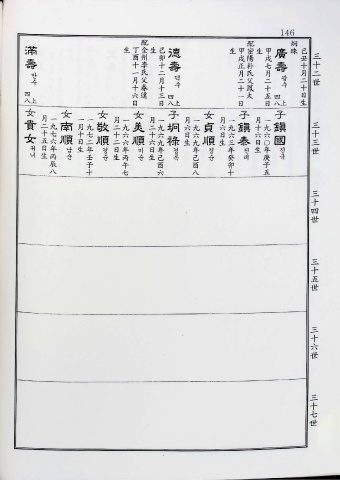 146
三十二世
炯珠 己丑十月二十日生
廣壽 광수 四八上
甲戌七月二十五日生
配密陽朴氏父鳳火
甲戌正月二十一日生
德壽 덕수 四八上
己卯十二月十三日生
配全州李氏父春遠
丁酉十一月十六日生
滿壽 만수 四八上
三十三世
子 鎭國 진국
一九六〇年庚子五月十六日生
子 鎭泰 진태
一九六三年癸卯十月六日生
女 貞順 정순
一九六九年己酉八月六日生
子 炯祿 형록
一九六九年己酉六月二十六日生
女 美順 미순
一九六六年丙午七月二十二日生
女 敬順 경순
一九七二年壬子十一月十日生
女 南順 남순
一九七六年丙辰八月二十五日生
女 貴女 귀녀
三十四世
三十五世
三十六世
三十七世